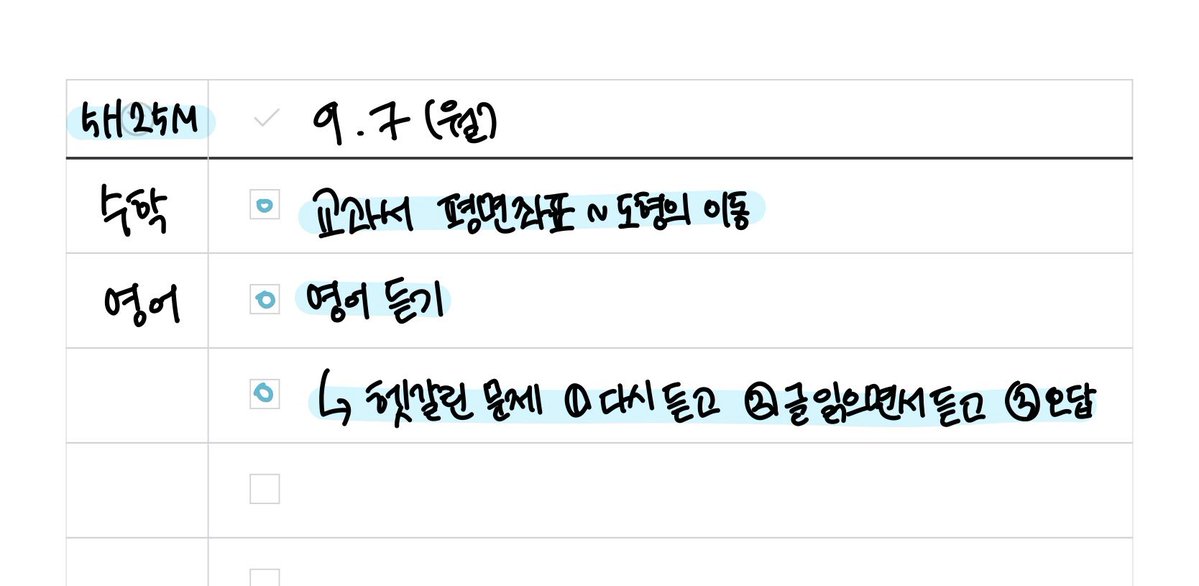 5H 25M 9.7 (월)
수학 교과서 평면좌표 ~ 도형의 이동
영어 영어 듣기
↳ 헷갈린 문제 ① 다시 듣고 ② 글 읽으면서 듣고 ③ 오답